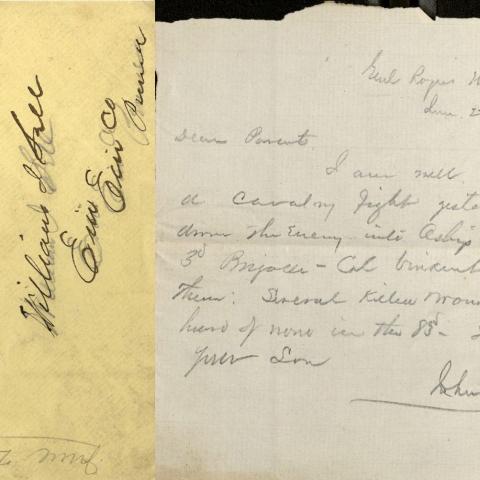 William S Hall
Erie Erie Co
Penna
June 2
Genl
June 2
Dear Parent
I am well
a cavalry fight yeste
drove the Enemy into Ashby
3d Brigade - Col Vincent
them. Several Killed & Woun
heard of none in the 83d -
Your Son
John